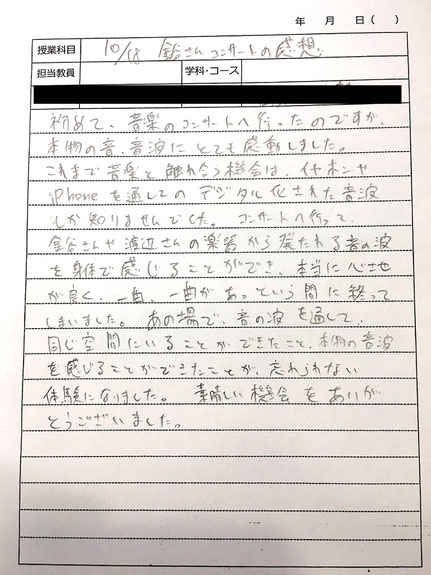 年 月 日( )
授業科目 10/18 鈴さんコンサートの感想
担当教員 学科・コース
初めて、音楽のコンサートへ行ったのですが、
本物の音、音波にとても感動しました。
これまで音楽と触れ合う機会は、イヤホンや
iPhoneを通してのデジタル化された音波
しか知りませんでした。コンサートへ行って、
さんや渡辺さんの楽器から発たれる音の波
を身体で感じることができ、本当に心地
が良く、一曲、一曲があっという間に終って
しまいました。あの場で、音の波を通して、
同じ空間にいることができたこと、本物の音波
を感じることができたことが、忘れられない
体験になりました。素晴しい機会をありが
とうございました。